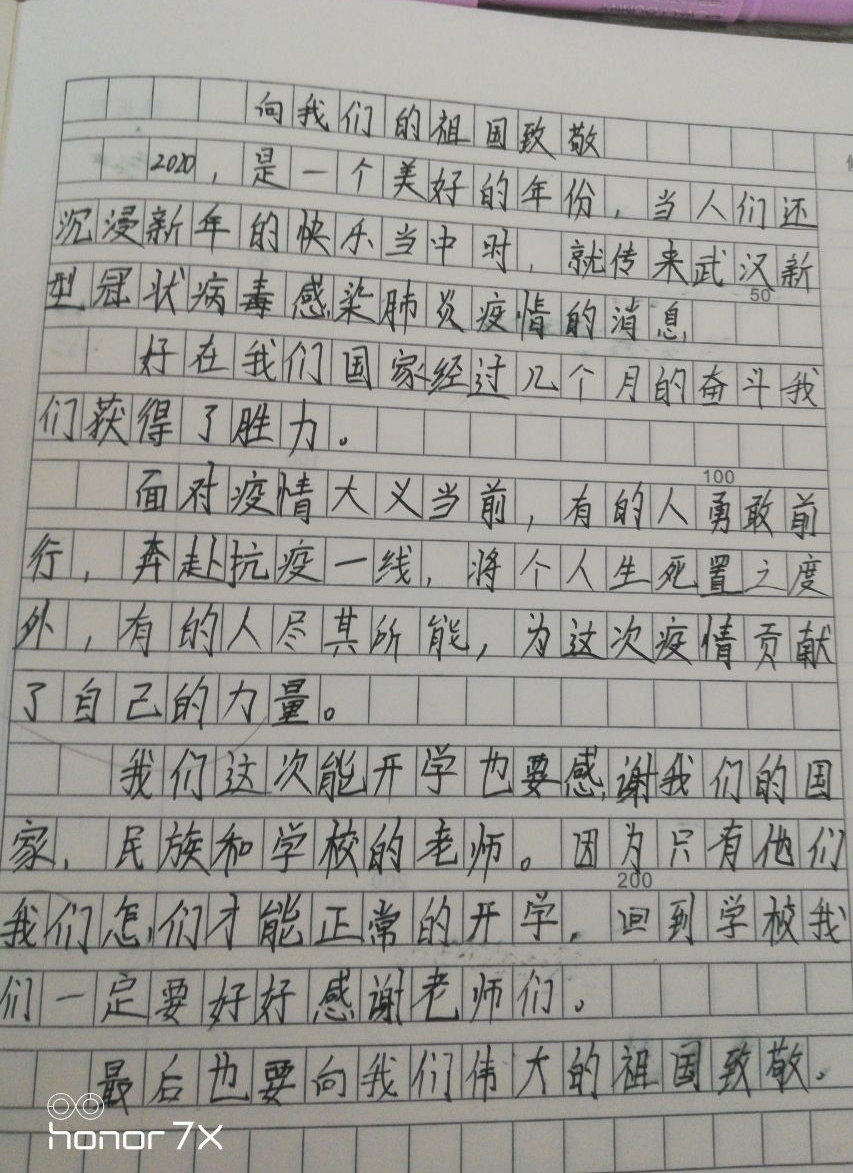 向我们的祖国致敬
2020，是一个美好的年份，当人们还
沉浸新年的快乐当中时，就传来武汉新
50
型冠状病毒感染肺炎疫情的消息
好在我们国家经过几个月的奋斗我
们获得了胜力。
100
面对疫情大义当前，有的人勇敢前
行，奔赴抗疫一线，将个人生死置之度
外，有的人尽其所能，为这次疫情贡献
了自己的力量。
我们这次能开学也要感谢我们的国
家，民族和学校的老师。因为只有他们
200
我们怎们才能正常的开学，回到学校我
们一定要好好感谢老师们。
最后也要向我们伟大的祖国致敬。
honor 7X